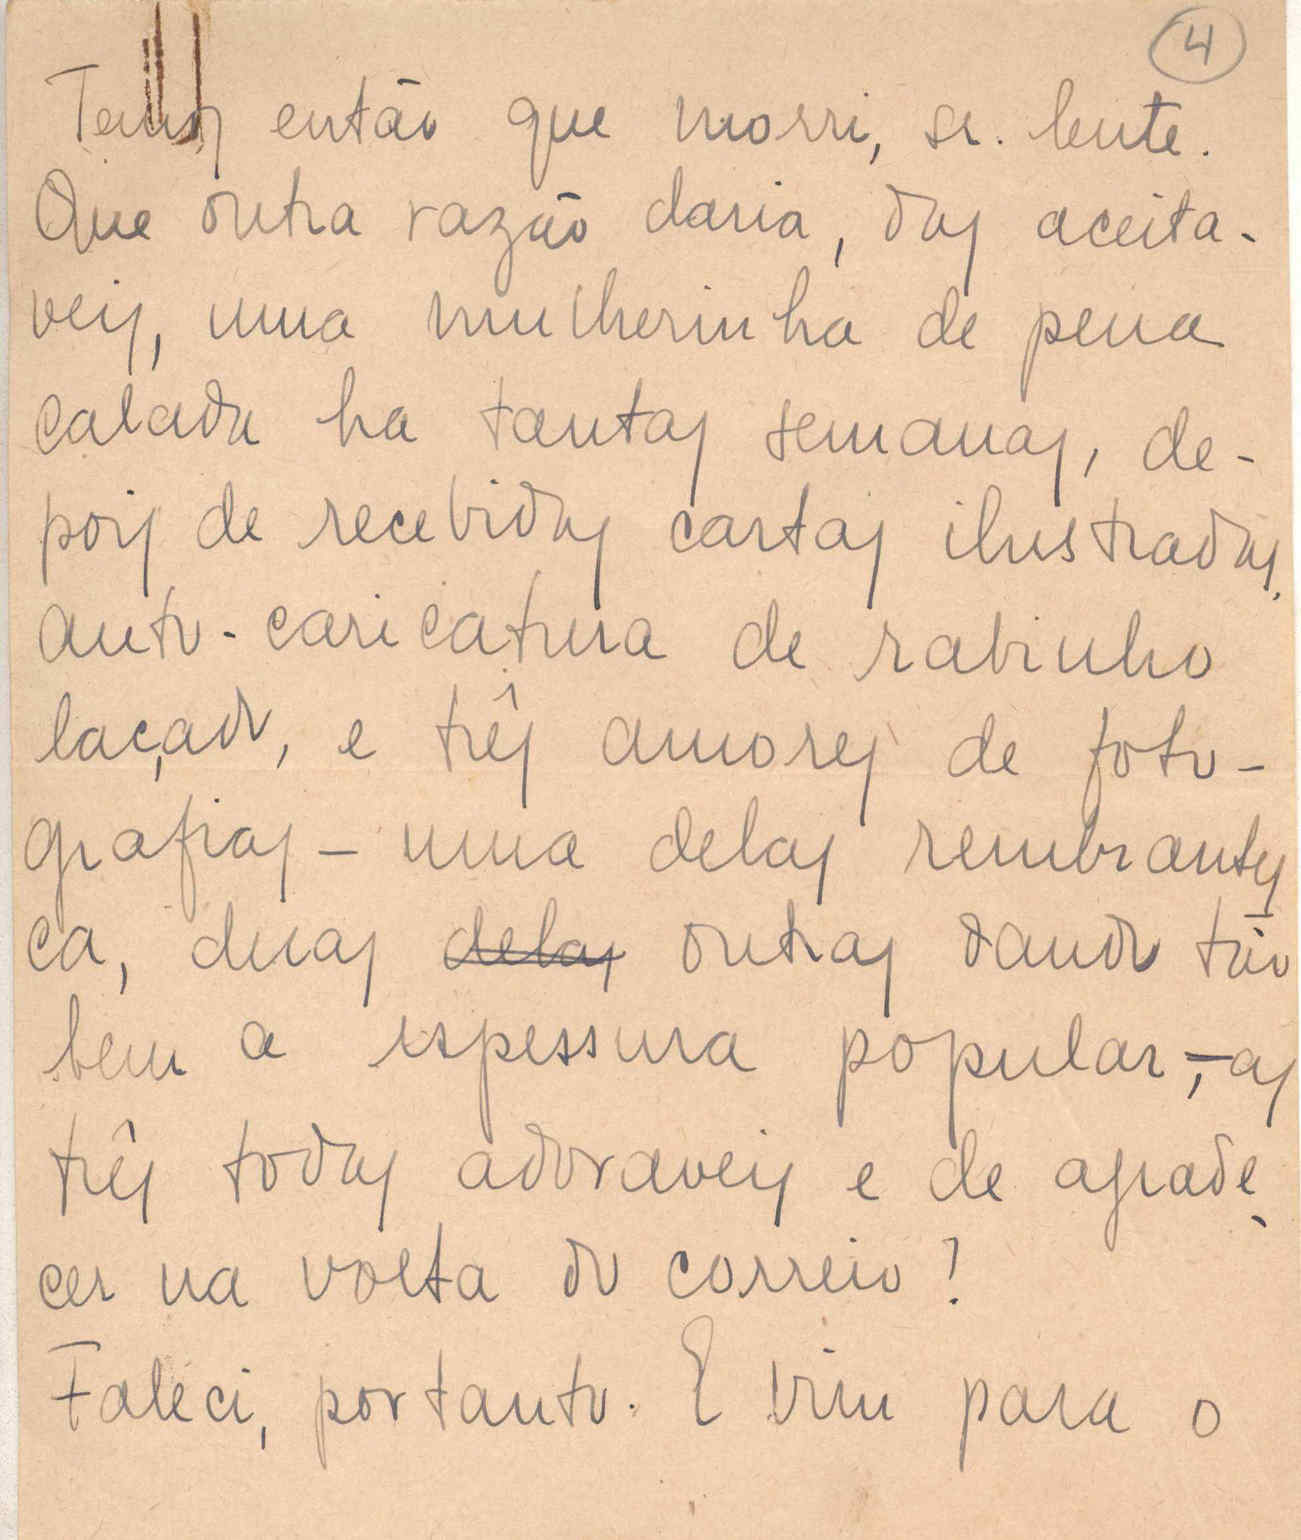 4
Temos então que morri, sr. lente.
Que outra razão daria, das aceita-
veis, uma mulherinha de pena
calada ha tantas semanas, de-
pois de recebidas cartas ilustradas,
auto-caricatura de rabinho
laçado, e três amores de foto-
grafias – uma delas rembrantes
ca, duas delas outras dando tão
bem a espessura popular, – as
três todas adoraveis e de agrade
cer na volta do correio!
Faleci, portanto. E vim para o